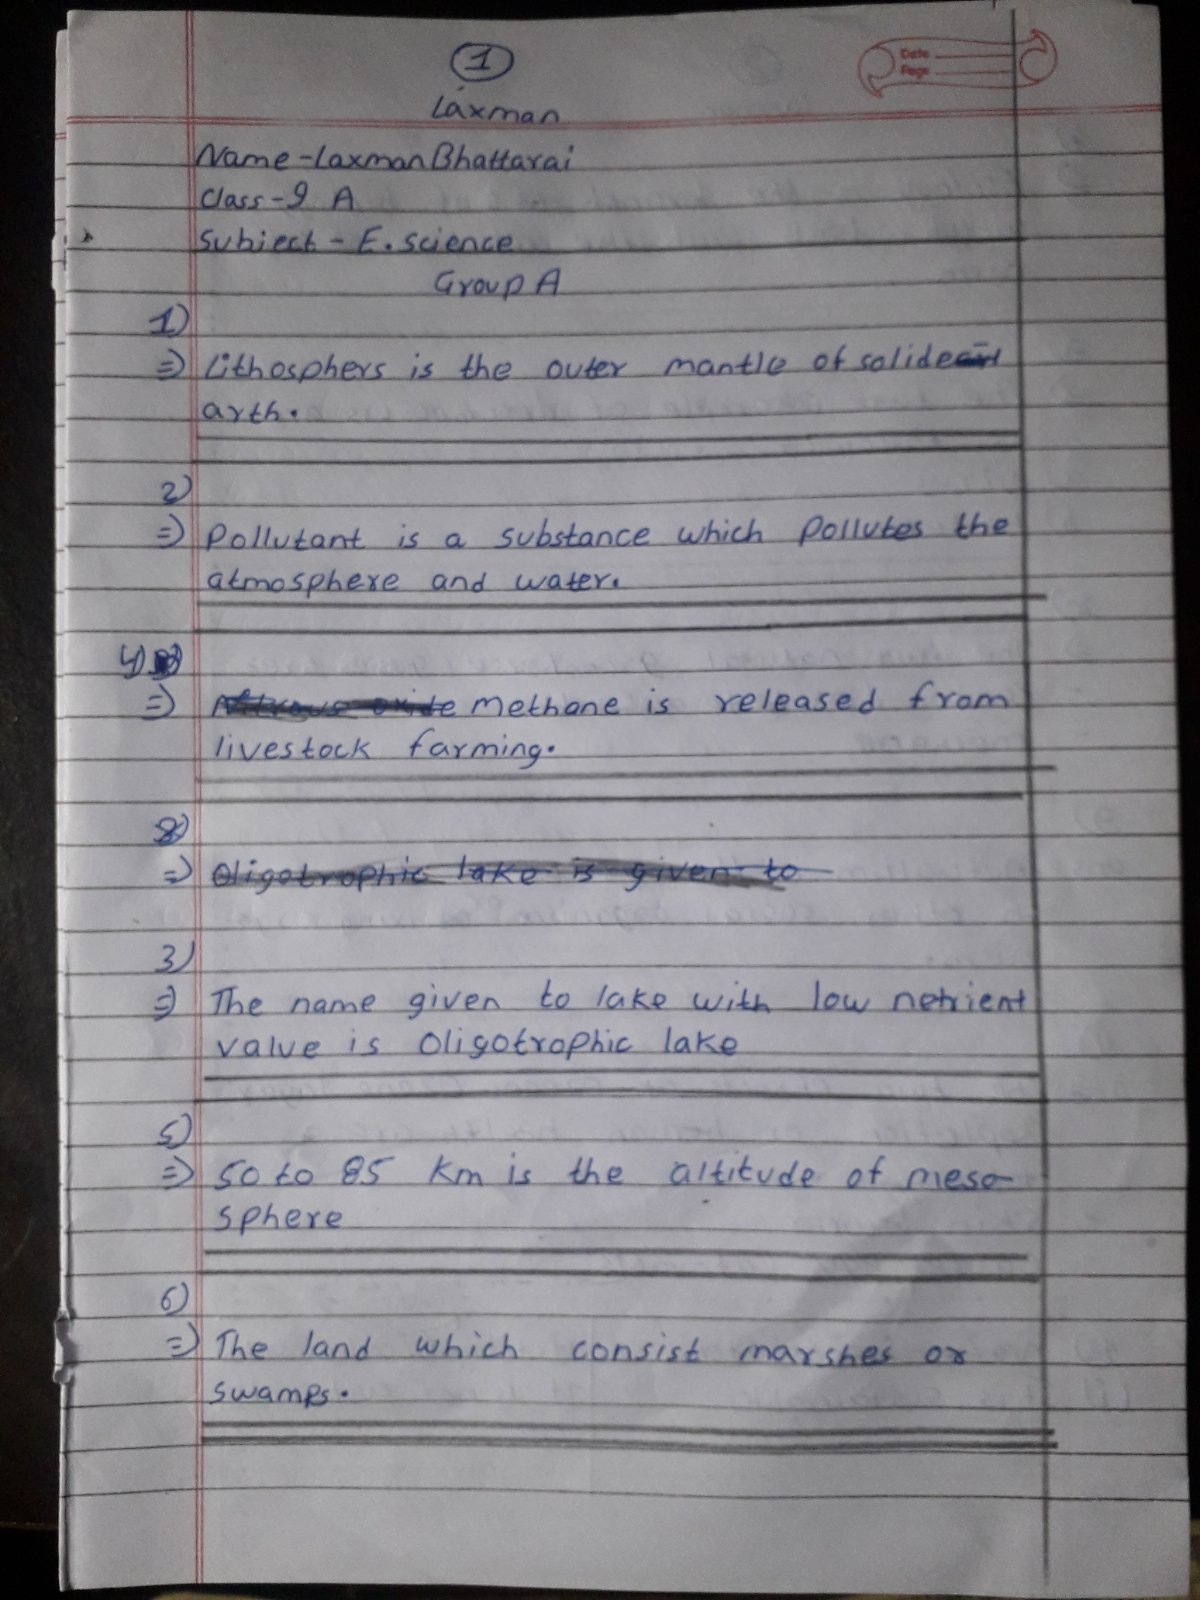 1
Date
Page
Laxman
Name - Laxman Bhattarai
Class - 9 A
Subject - E. science
Group A
1)
⇒ Lithosphers is the outer mantle of solide
arth.
2)
⇒ Pollutant is a substance which pollutes the
atmosphere and water.
4)
⇒ Nitrous oxide Methane is released from
livestock farming.
8)
⇒ Oligotrophic lake is given to
3)
⇒ The name given to lake with low netrient
value is Oligotrophic lake
5)
⇒ 50 to 85 Km is the altitude of meso-
sphere
6)
⇒ The land which consist marshes or
swamps.